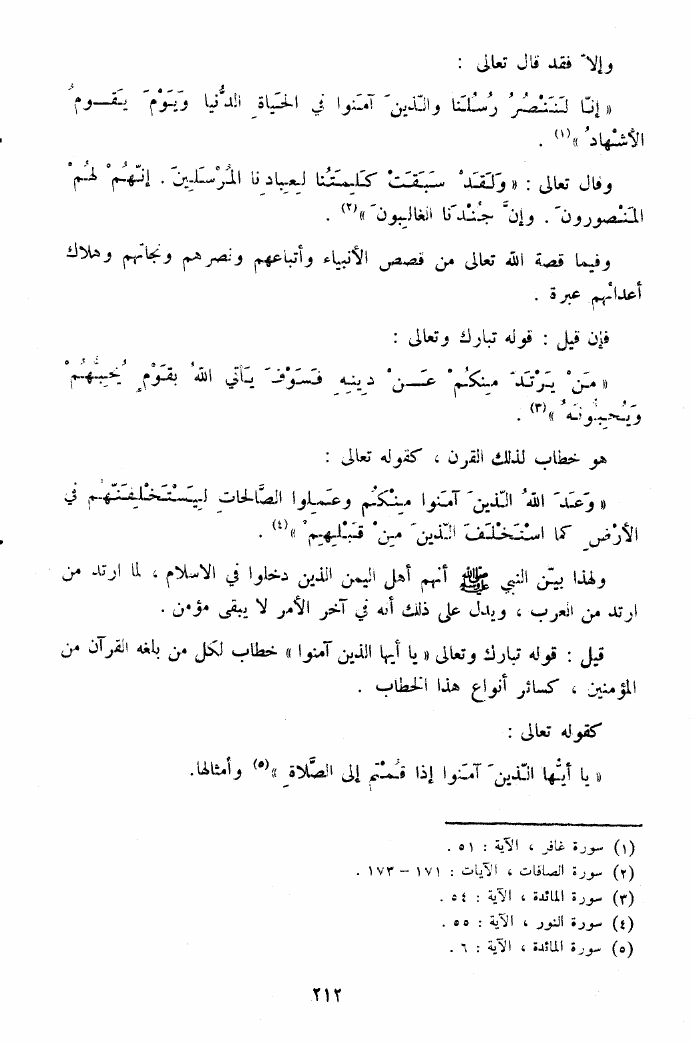 وإلاّ فقد قال تعالى :
« إنّا لَنَنْصُرُ رُسُلَنا والّذينَ آمَنوا في الحَياةِ الدُّنيا وَيَوْمَ يَقـــومُ
الأشْهادُ »(١) .
وقال تعالى : « وَلَقَدْ سَبَقَتْ كَلِمَتُنا لِعِبادِنا المُرْسَلينَ . إنّهُمْ لهُمْ
المَنْصورونَ . وإنَّ جُنْدَنا الغالِبونَ »(٢) .
وفيما قصة الله تعالى من قصص الأنبياء وأتباعهم ونصرهم ونجاتهم وهلاك
أعدائهم عبرة .
فإن قيل : قوله تبارك وتعالى :
« مَنْ يَرْتَدَ مِنكُمْ عَـــنْ دينِهِ فَسَوْفَ يَأتي اللهُ بقَوْمٍ يُحِبُّهُمْ
وَيُحِبُّونَهُ »(٣) .
هو خطاب لذلك القرن ، كقوله تعالى :
« وَعَدَ اللهُ الّذينَ آمَنوا مِنْكُم وعَمِلوا الصَّالحاتِ لَيَسْتَخْلِفَنّهُم في
الأرْضِ كما اسْتَخْلَفَ الّذينَ مِنْ قَبْلِهِمْ »(٤) .
ولهذا بيّن النبي ﷺ أنهم أهل اليمن الذين دخلوا في الاسلام ، لما ارتد من
ارتد من العرب ، ويدل على ذلك أنه في آخر الأمر لا يبقى مؤمن .
قيل : قوله تبارك وتعالى « يا أيها الذين آمنوا » خطاب لكل من بلغه القرآن من
المؤمنين ، كسائر أنواع هذا الخطاب .
كقوله تعالى :
« يا أيّها الّذينَ آمَنوا إذا قُمْتم إلى الصَّلاةِ »(٥) وأمثالها.
(١) سورة غافر ، الآية : ٥١ .
(٢) سورة الصافات ، الآيات : ١٧١ – ١٧٣ .
(٣) سورة المائدة ، الآية : ٥٤ .
(٤) سورة النور ، الآية : ٥٥ .
(٥) سورة المائدة ، الآية : ٦ .
٢١٢